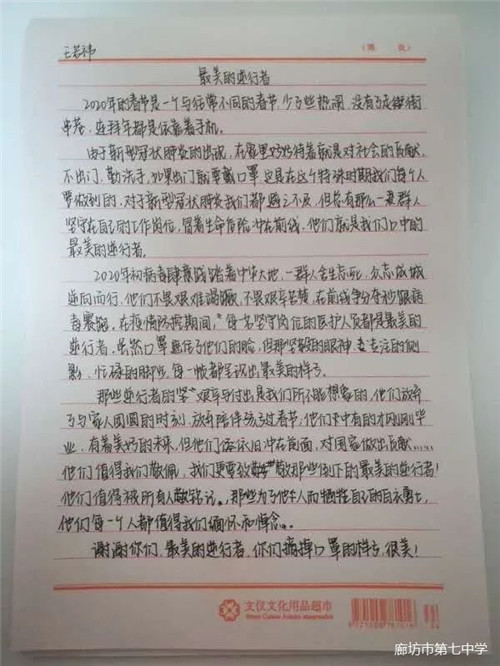 王若祎
最美的逆行者
2020年的春节是一个与往常不同的春节,少了些热闹,没有了走街
串巷,连拜年都是依靠着手机。
由于新型冠状肺炎的出现,在家里好好待着就是对社会的贡献,
不出门,勤洗手,如果出门就要戴口罩,这是在这个特殊时期我们每个人
要做到的,对于新型冠状肺炎我们都避之不及,但总有那么一群人
坚守在自己的工作岗位,冒着生命危险冲在前线,他们就是我们口中的
最美的逆行者。
2020年初病毒肆意践踏着中华大地,一群人舍生忘死,众志成城
逆向而行,他们不畏艰难,不畏艰辛苦楚,在前线争分夺秒跟病
毒赛跑,在疫情防控期间,每名坚守岗位的医护人员都是最美的
逆行者,虽然口罩遮住了他们的脸,但那坚毅的眼神,专注的侧
影,忙碌的脚步,每一帧都呈现出最美的样子。
那些逆行者的坚艰辛与付出是我们所不能想象的,他们放弃
了与家人团圆的时刻,放弃陪伴孩子过春节,他们其中有的才刚刚毕
业,有着美好的未来,但他们依旧冲在前面,对国家做出贡献……
他们值得我们敬佩,我们更要致敬那些倒下的最美的逆行者!
他们值得被所有人铭记。那些为了他人而牺牲自己的白衣勇士,
他们每一个人都值得我们缅怀和悼念。
谢谢你们,最美的逆行者,你们摘掉口罩的样子,很美!
文仪文化用品超市
廊坊市第七中学